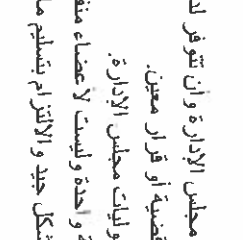 مجلس الإدارة وأن تتوفر لد
قضية أو قرار معين.
وليات مجلس الإدارة.
واحدة وليست لأعضاء
شكل جيد والالتزام بتسليم